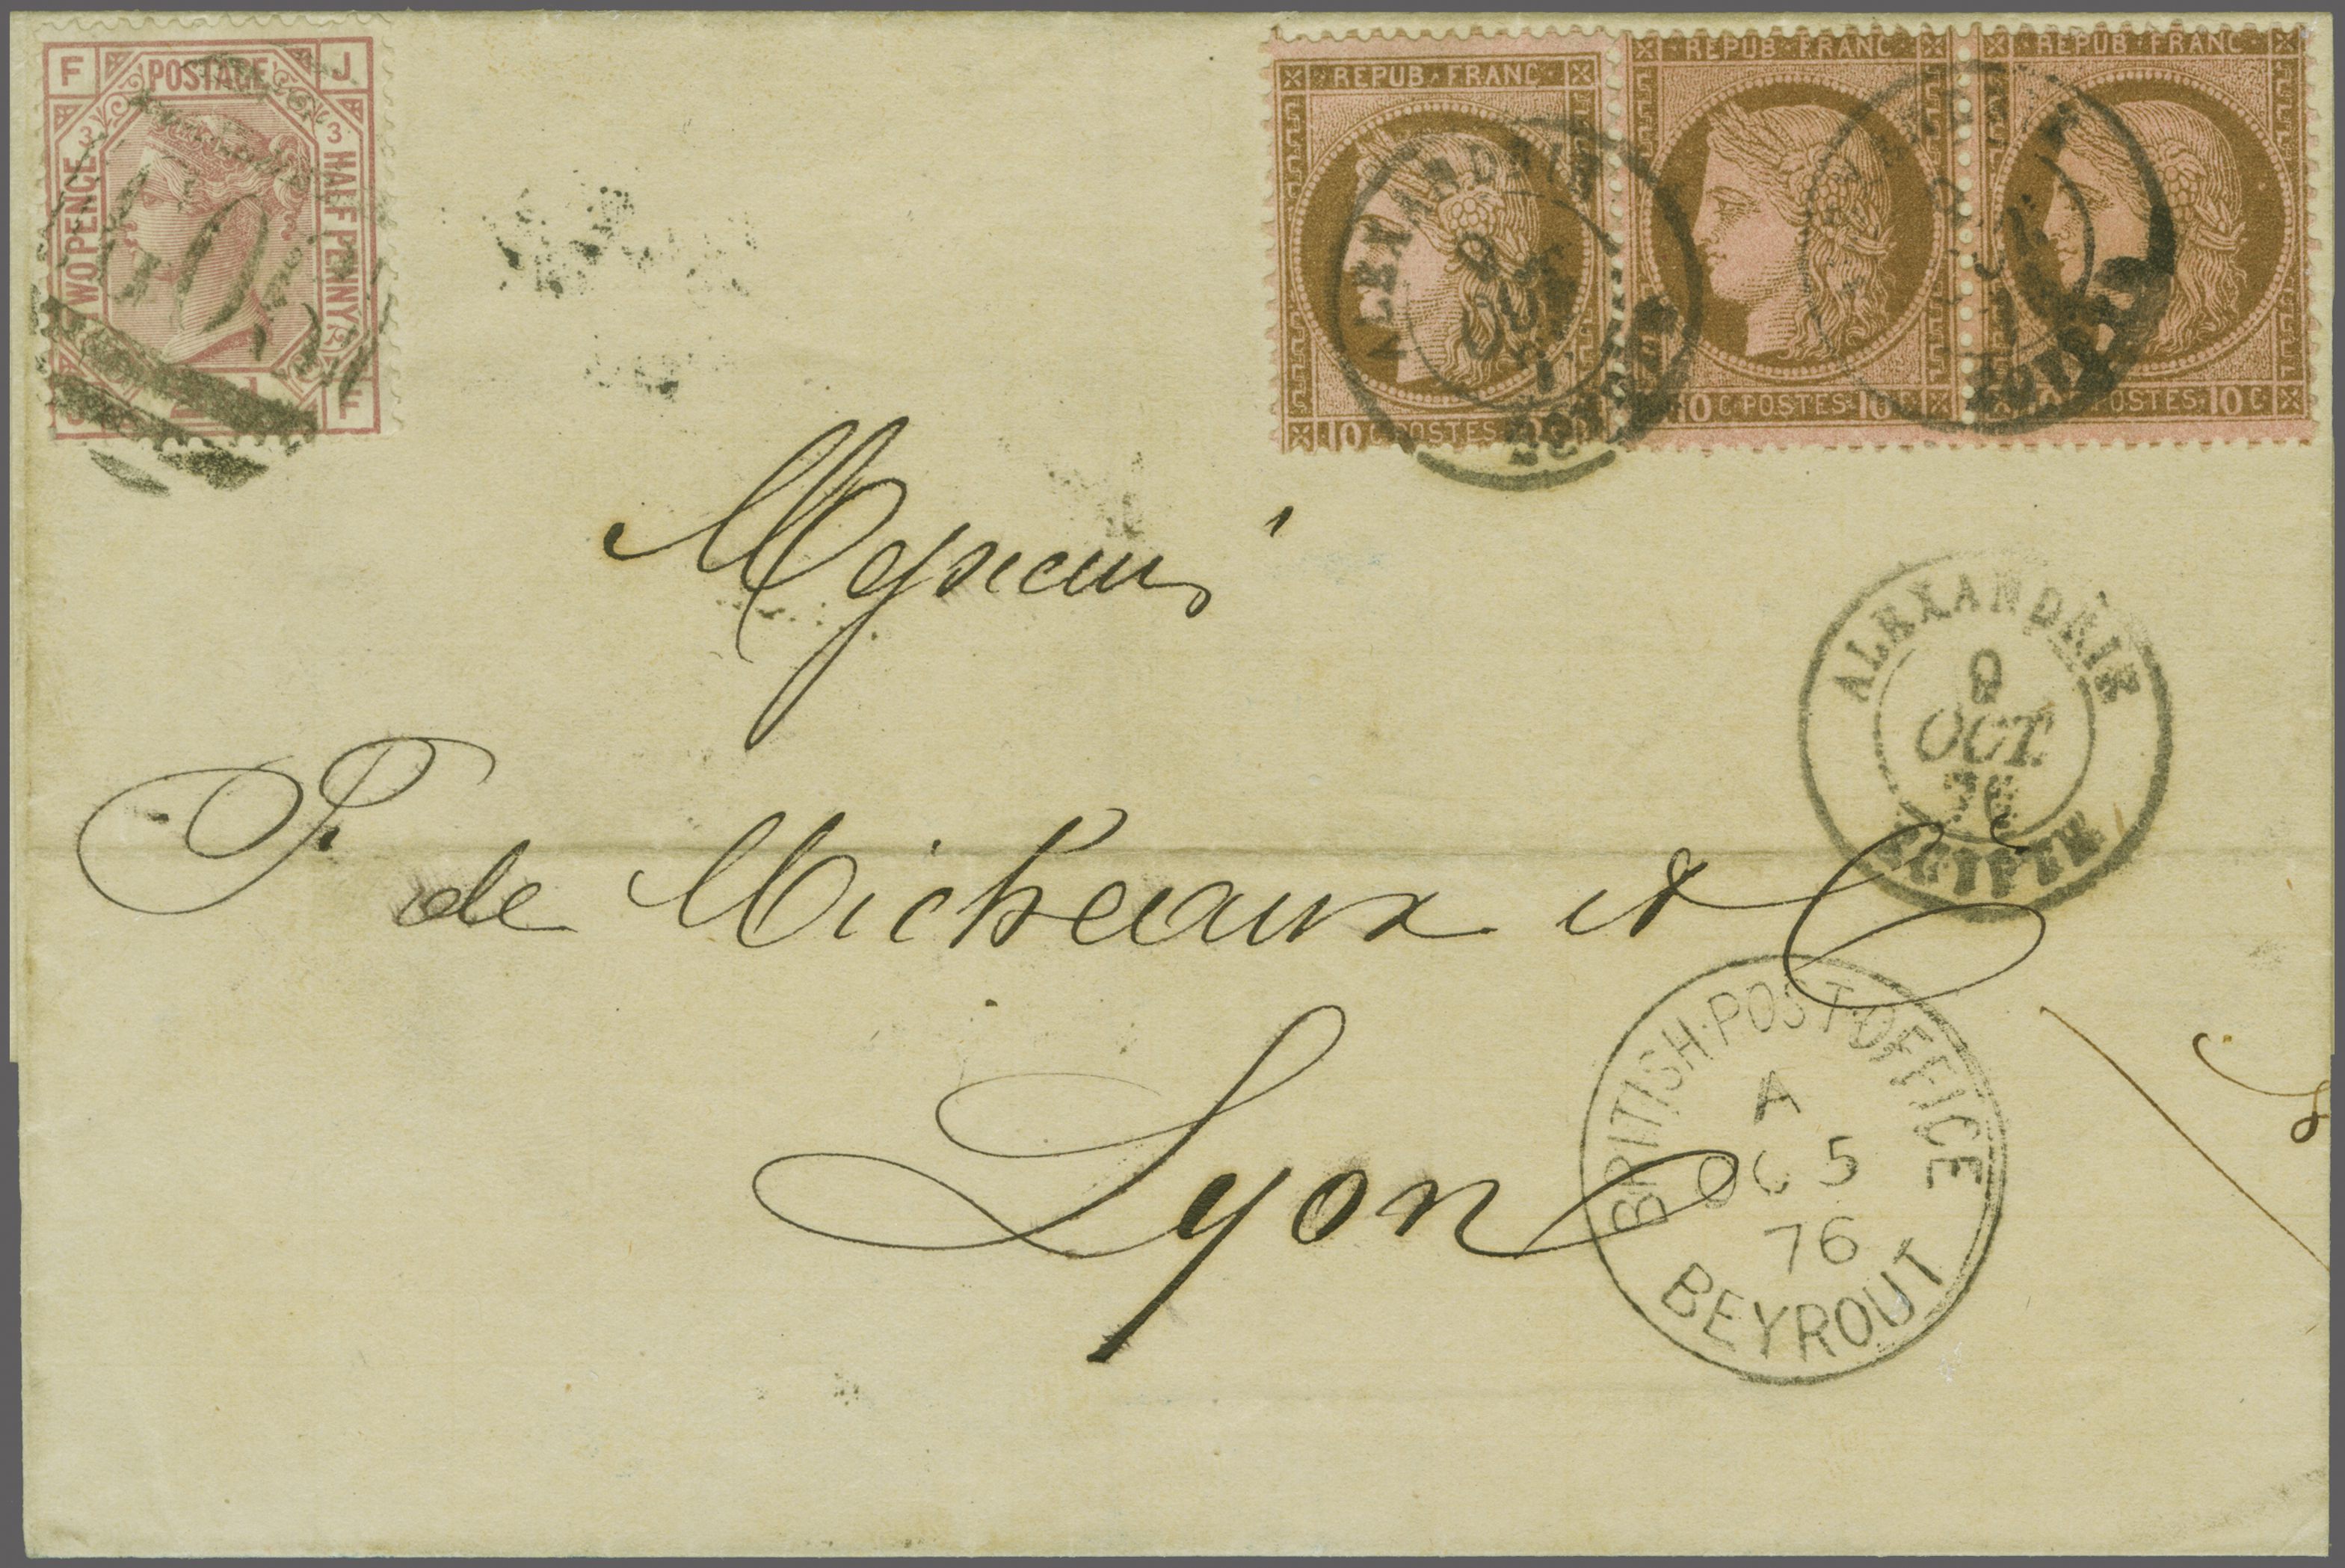 F POSTAGE J
3 3
TWO PENCE
HALF PENNY
J F
G06
REPUB FRANC
10 C POSTES 10 C
REPUB FRANC
10 C POSTES 10 C
REPUB FRANC
10 C POSTES 10 C
ALEXANDRIE
9
OCT.
EGYPTE
Messieurs
ALEXANDRIE
9
OCT.
76
EGYPTE
P. de Micheaux et C
Lyon
BRITISH·POST·OFFICE
A
OC 5
76
BEYROUT